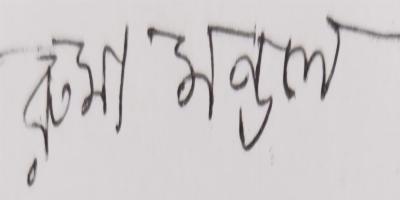 রুমা মণ্ডল